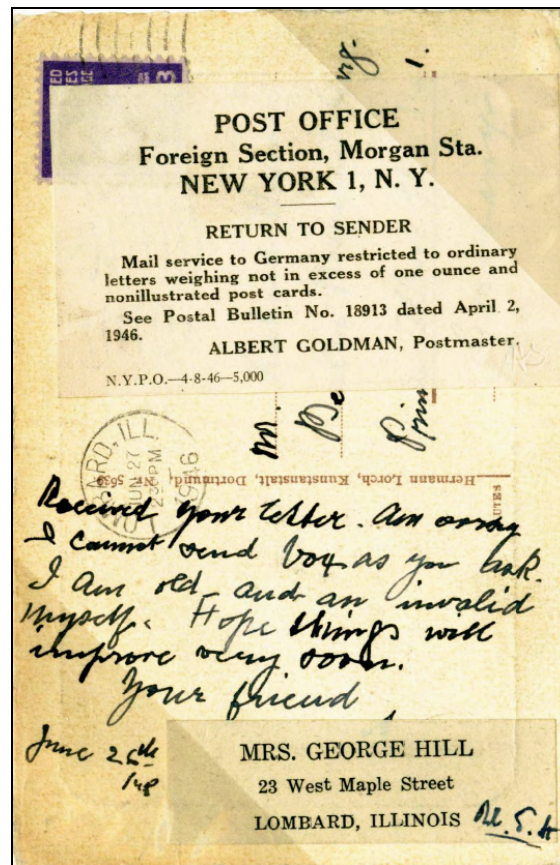 POST OFFICE
Foreign Section, Morgan Sta.
NEW YORK 1, N. Y.
RETURN TO SENDER
Mail service to Germany restricted to ordinary
letters weighing not in excess of one ounce and
nonillustrated post cards.
See Postal Bulletin No. 18913 dated April 2,
1946.
ALBERT GOLDMAN, Postmaster.
N.Y.P.O.—4-8-46—5,000
LOMBARD, ILL.
JUN 27
2 30 PM
1946
Hermann Lorch, Kunstanstalt, Dortmund, Nr. 5639
Received your letter. Am sorry
I cannot send box as you ask.
I am old - and an invalid
myself. Hope things will
improve very soon.
Your friend
June 26th
MRS. GEORGE HILL
23 West Maple Street
LOMBARD, ILLINOIS U.S.A